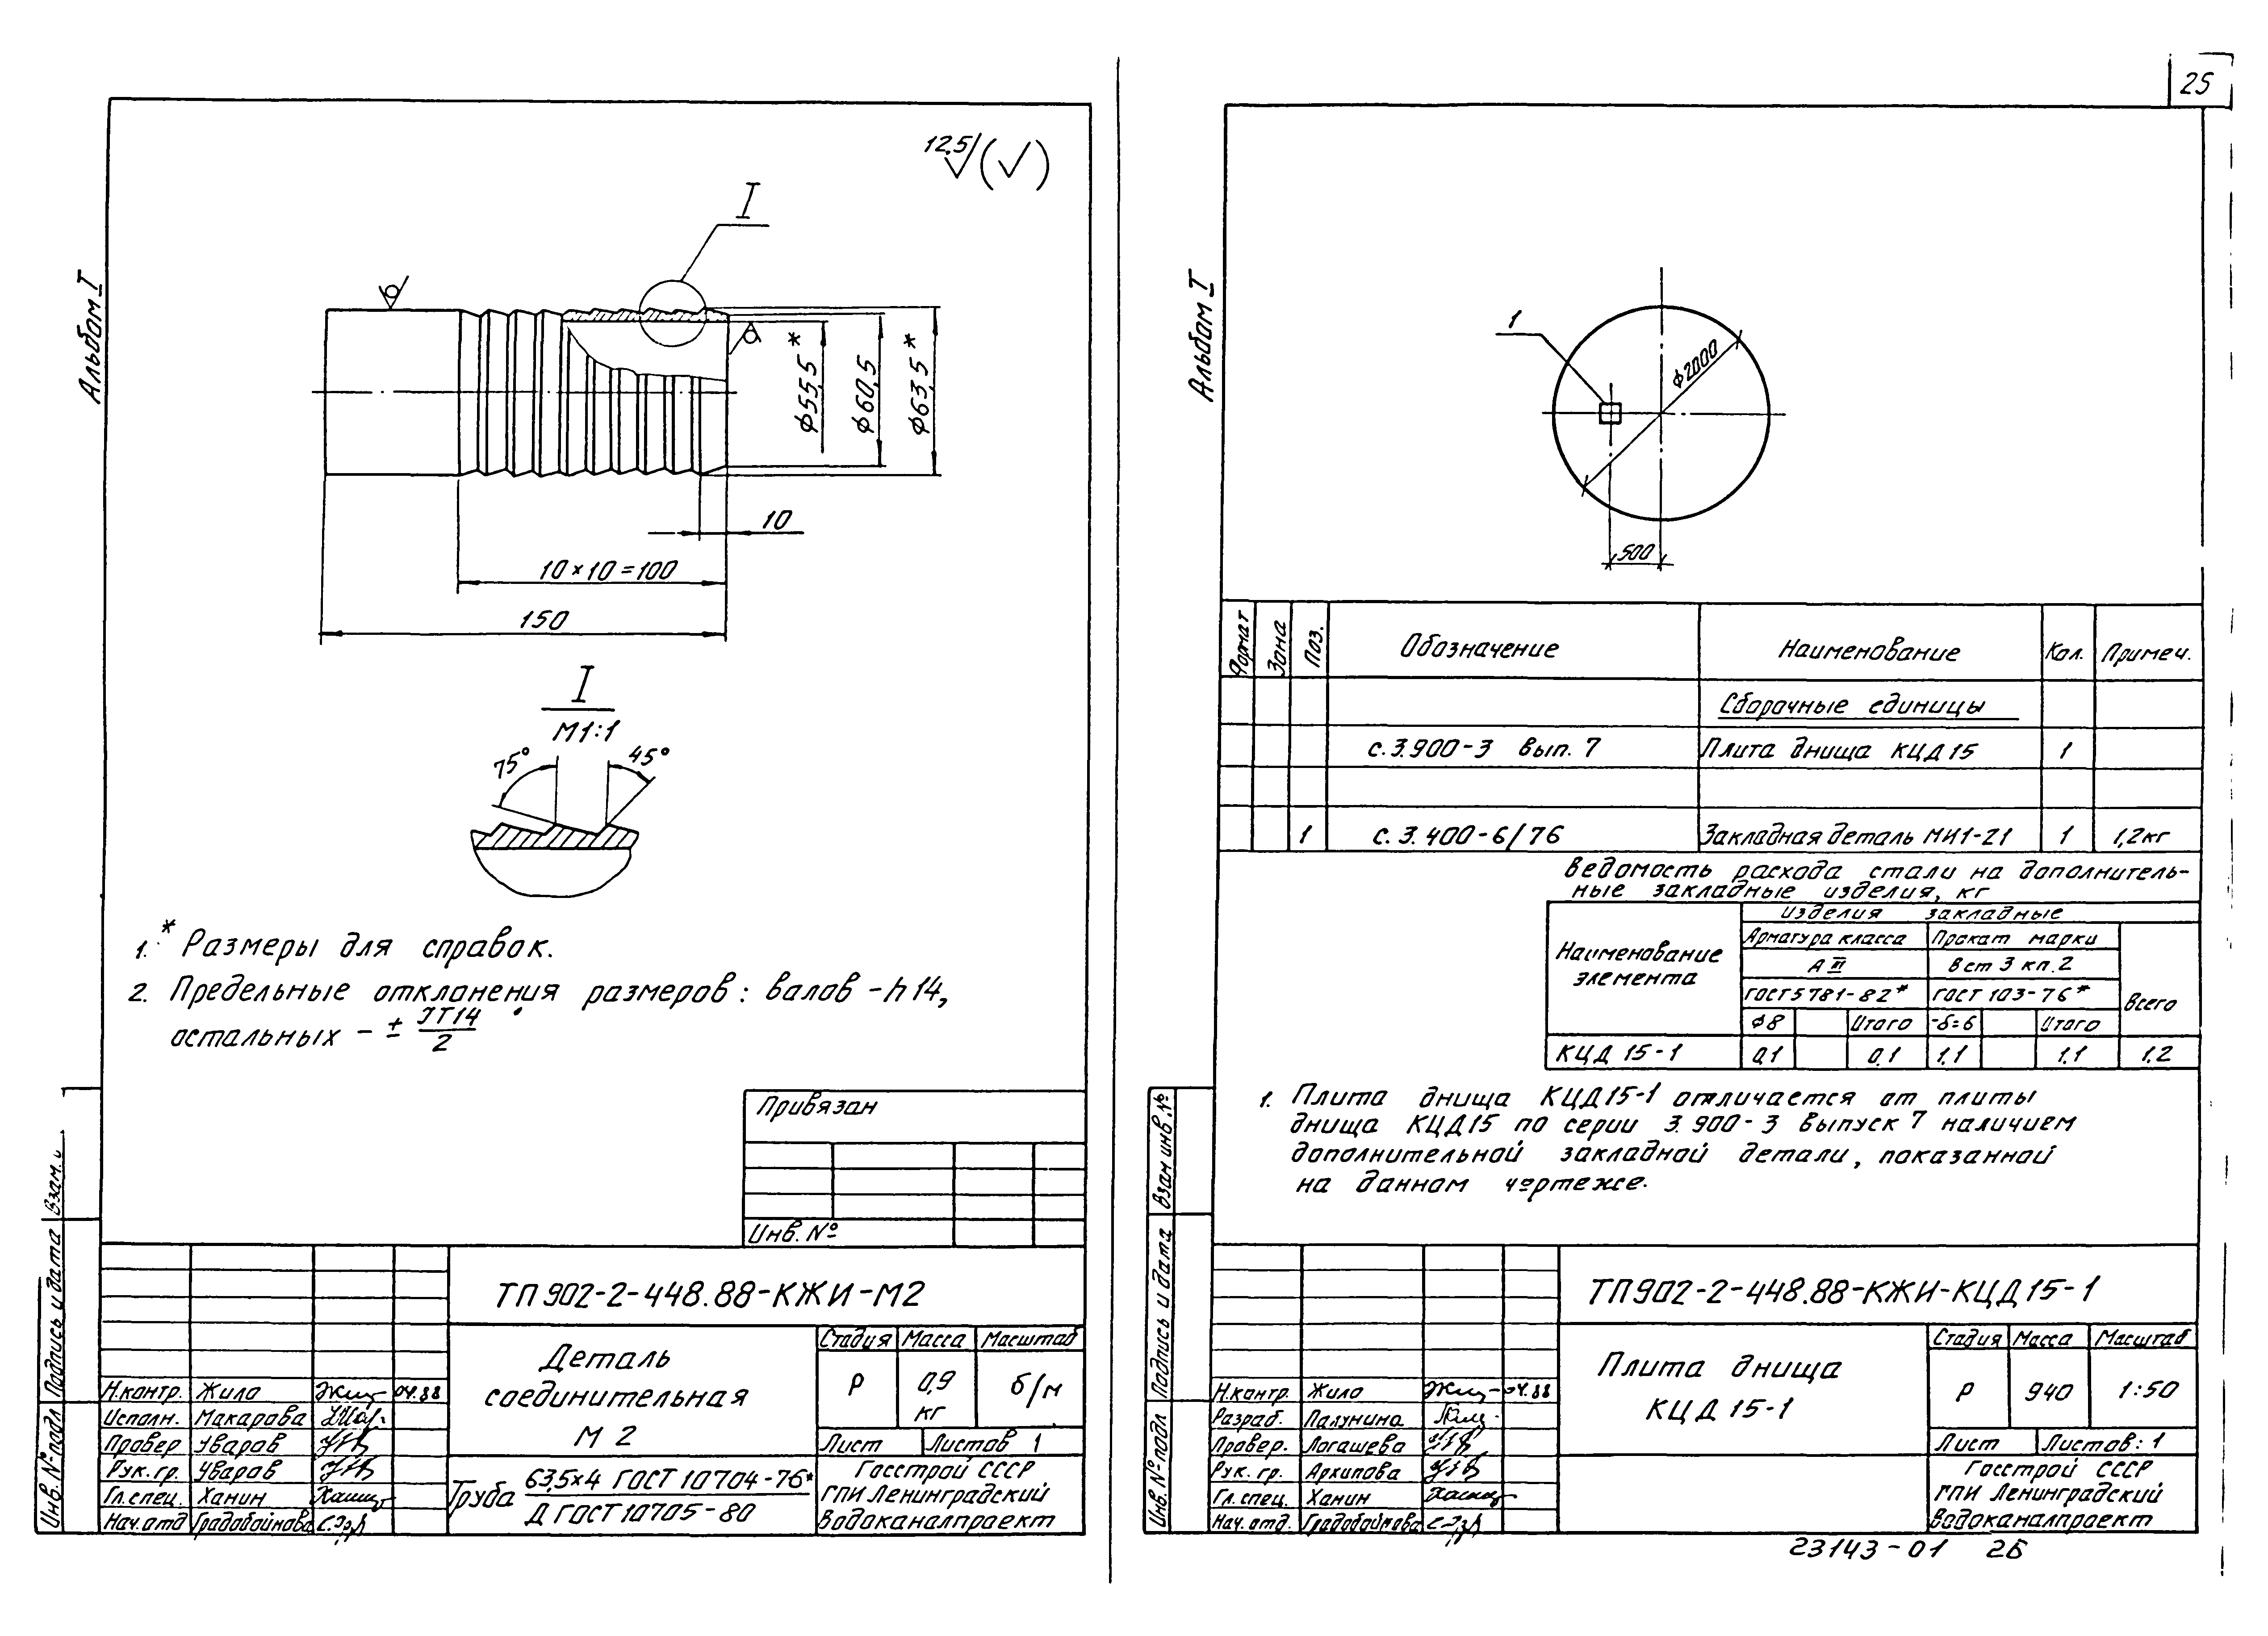 25
Альбом I
12,5 (√)
I
ϕ55,5*
ϕ60,5
ϕ63,5*
10
10×10=100
150
I
М1:1
75°
45°
1.* Размеры для справок.
2. Предельные отклонения размеров: валов - h14,
остальных - ± IT14/2.
Привязан
Инв. №
Взам. и
Подпись и дата
Инв. № подл
ТП902-2-448.88-КЖИ-М2
Деталь
соединительная
М 2
Стадия Масса Масштаб
Р 0,9 кг б/м
Лист Листов 1
Н.контр. Жило 04.88
Исполн. Макарова
Провер Уваров
Рук. гр. Уваров
Гл.спец. Ханин
Нач.отд Градобойнова
Труба 63,5×4 ГОСТ 10704-76*
Д ГОСТ 10705-80
Госстрой СССР
ГПИ Ленинградский
Водоканалпроект
Альбом I
1
ϕ2000
500
Формат Зона Поз. Обозначение Наименование Кол. Примеч.
Сборочные единицы
с.3.900-3 вып. 7 Плита днища КЦД15 1
1 с.3.400-6/76 Закладная деталь МИ1-21 1 1,2кг
Ведомость расхода стали на дополнитель-
ные закладные изделия, кг
Наименование
элемента
Изделия закладные
Арматура класса Прокат марки
А III Вст 3 кп.2
ГОСТ5781-82* ГОСТ 103-76* Всего
ϕ8 Итого -δ=6 Итого
КЦД 15-1 0,1 0,1 1,1 1,1 1,2
1. Плита днища КЦД15-1 отличается от плиты
днища КЦД15 по серии 3.900-3 выпуск 7 наличием
дополнительной закладной детали, показанной
на данном чертеже.
Взам инв.№
Подпись и дата
Инв. № подл
ТП902-2-448.88-КЖИ-КЦД15-1
Плита днища
КЦД 15-1
Стадия Масса Масштаб
Р 940 1:50
Лист Листов: 1
Н.контр. Жило 04.88
Разраб. Палунина
Провер. Логашева
Рук. гр. Архипова
Гл. спец. Ханин
Нач. отд. Градобойнова
Госстрой СССР
ГПИ Ленинградский
Водоканалпроект
23143-01 26